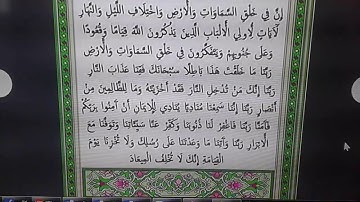 إِنَّ فِي خَلْقِ السَّمَاوَاتِ وَالْأَرْضِ وَاخْتِلَافِ اللَّيْلِ وَالنَّهَارِ
لَآيَاتٍ لِأُولِي الْأَلْبَابِ الَّذِينَ يَذْكُرُونَ اللَّهَ قِيَامًا وَقُعُودًا
وَعَلَى جُنُوبِهِمْ وَيَتَفَكَّرُونَ فِي خَلْقِ السَّمَاوَاتِ وَالْأَرْضِ
رَبَّنَا مَا خَلَقْتَ هَذَا بَاطِلًا سُبْحَانَكَ فَقِنَا عَذَابَ النَّارِ
رَبَّنَا إِنَّكَ مَنْ تُدْخِلِ النَّارَ فَقَدْ أَخْزَيْتَهُ وَمَا لِلظَّالِمِينَ مِنْ
أَنْصَارٍ رَبَّنَا إِنَّنَا سَمِعْنَا مُنَادِيًا يُنَادِي لِلْإِيمَانِ أَنْ آمِنُوا بِرَبِّكُمْ
فَآمَنَّا رَبَّنَا فَاغْفِرْ لَنَا ذُنُوبَنَا وَكَفِّرْ عَنَّا سَيِّئَاتِنَا وَتَوَفَّنَا مَعَ
الْأَبْرَارِ رَبَّنَا وَآتِنَا مَا وَعَدْتَنَا عَلَى رُسُلِكَ وَلَا تُخْزِنَا يَوْمَ
الْقِيَامَةِ إِنَّكَ لَا تُخْلِفُ الْمِيعَادَ